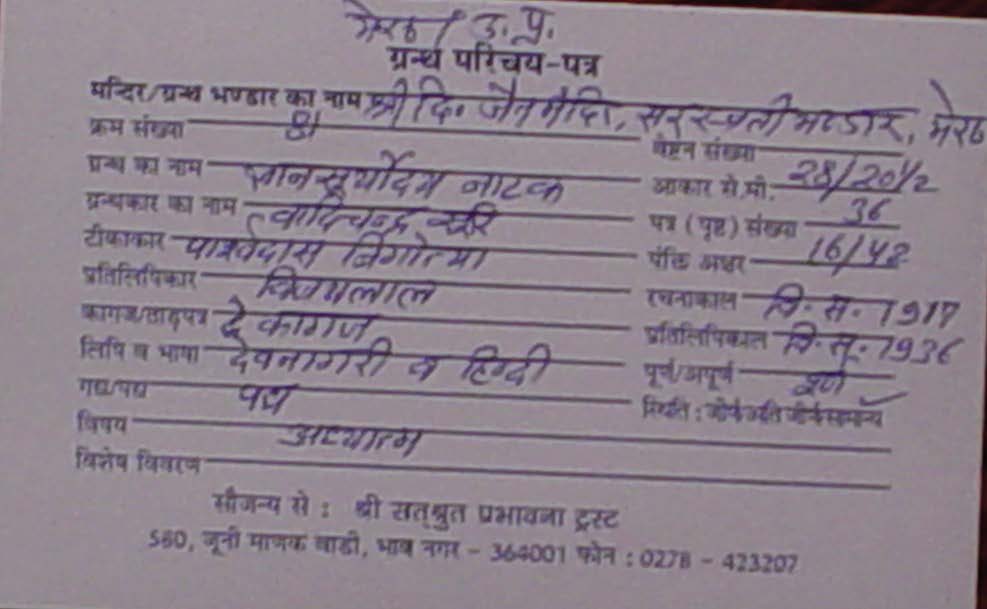 मेरठ / उ. प्र.
ग्रन्थ परिचय-पत्र
मन्दिर/ग्रन्थ भण्डार का नाम श्री दि. जैन मंदिर, सरस्वती भण्डार, मेरठ
क्रम संख्या वेष्टन संख्या
ग्रन्थ का नाम ज्ञानसूर्योदय नाटक आकार से.मी. 28/20 1/2
ग्रन्थकार का नाम वादिचन्द्र सूरि पत्र (पृष्ठ) संख्या 36
टीकाकार पार्श्वदास निगोत्या पंक्ति अक्षर 16/42
प्रतिलिपिकार रचनाकाल वि. स. 1917
कागज/ताड़पत्र दे कागज प्रतिलिपिकाल वि. सू. 1936
लिपि व भाषा देवनागरी व हिन्दी पूर्ण/अपूर्ण पूर्ण
गद्य/पद्य पद्य स्थिति : जीर्ण अति जीर्ण सामान्य
विषय अध्यात्म
विशेष विवरण
सौजन्य से : श्री सत्श्रुत प्रभावना ट्रस्ट
580, जूनी माणक वाडी, भाव नगर - 364001 फोन : 0278 - 423207